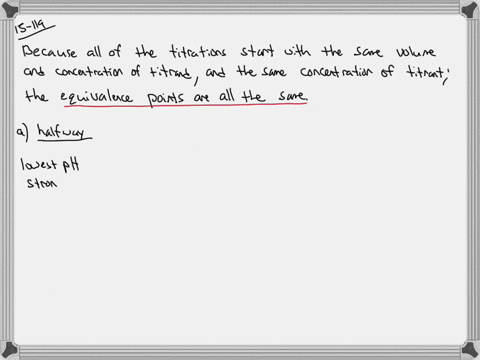 15-119
Because all of the titrations start with the same volume
and concentration of titrand, and the same concentration of titrant,
the equivalence points are all the same
a) halfway
lowest pH
stron